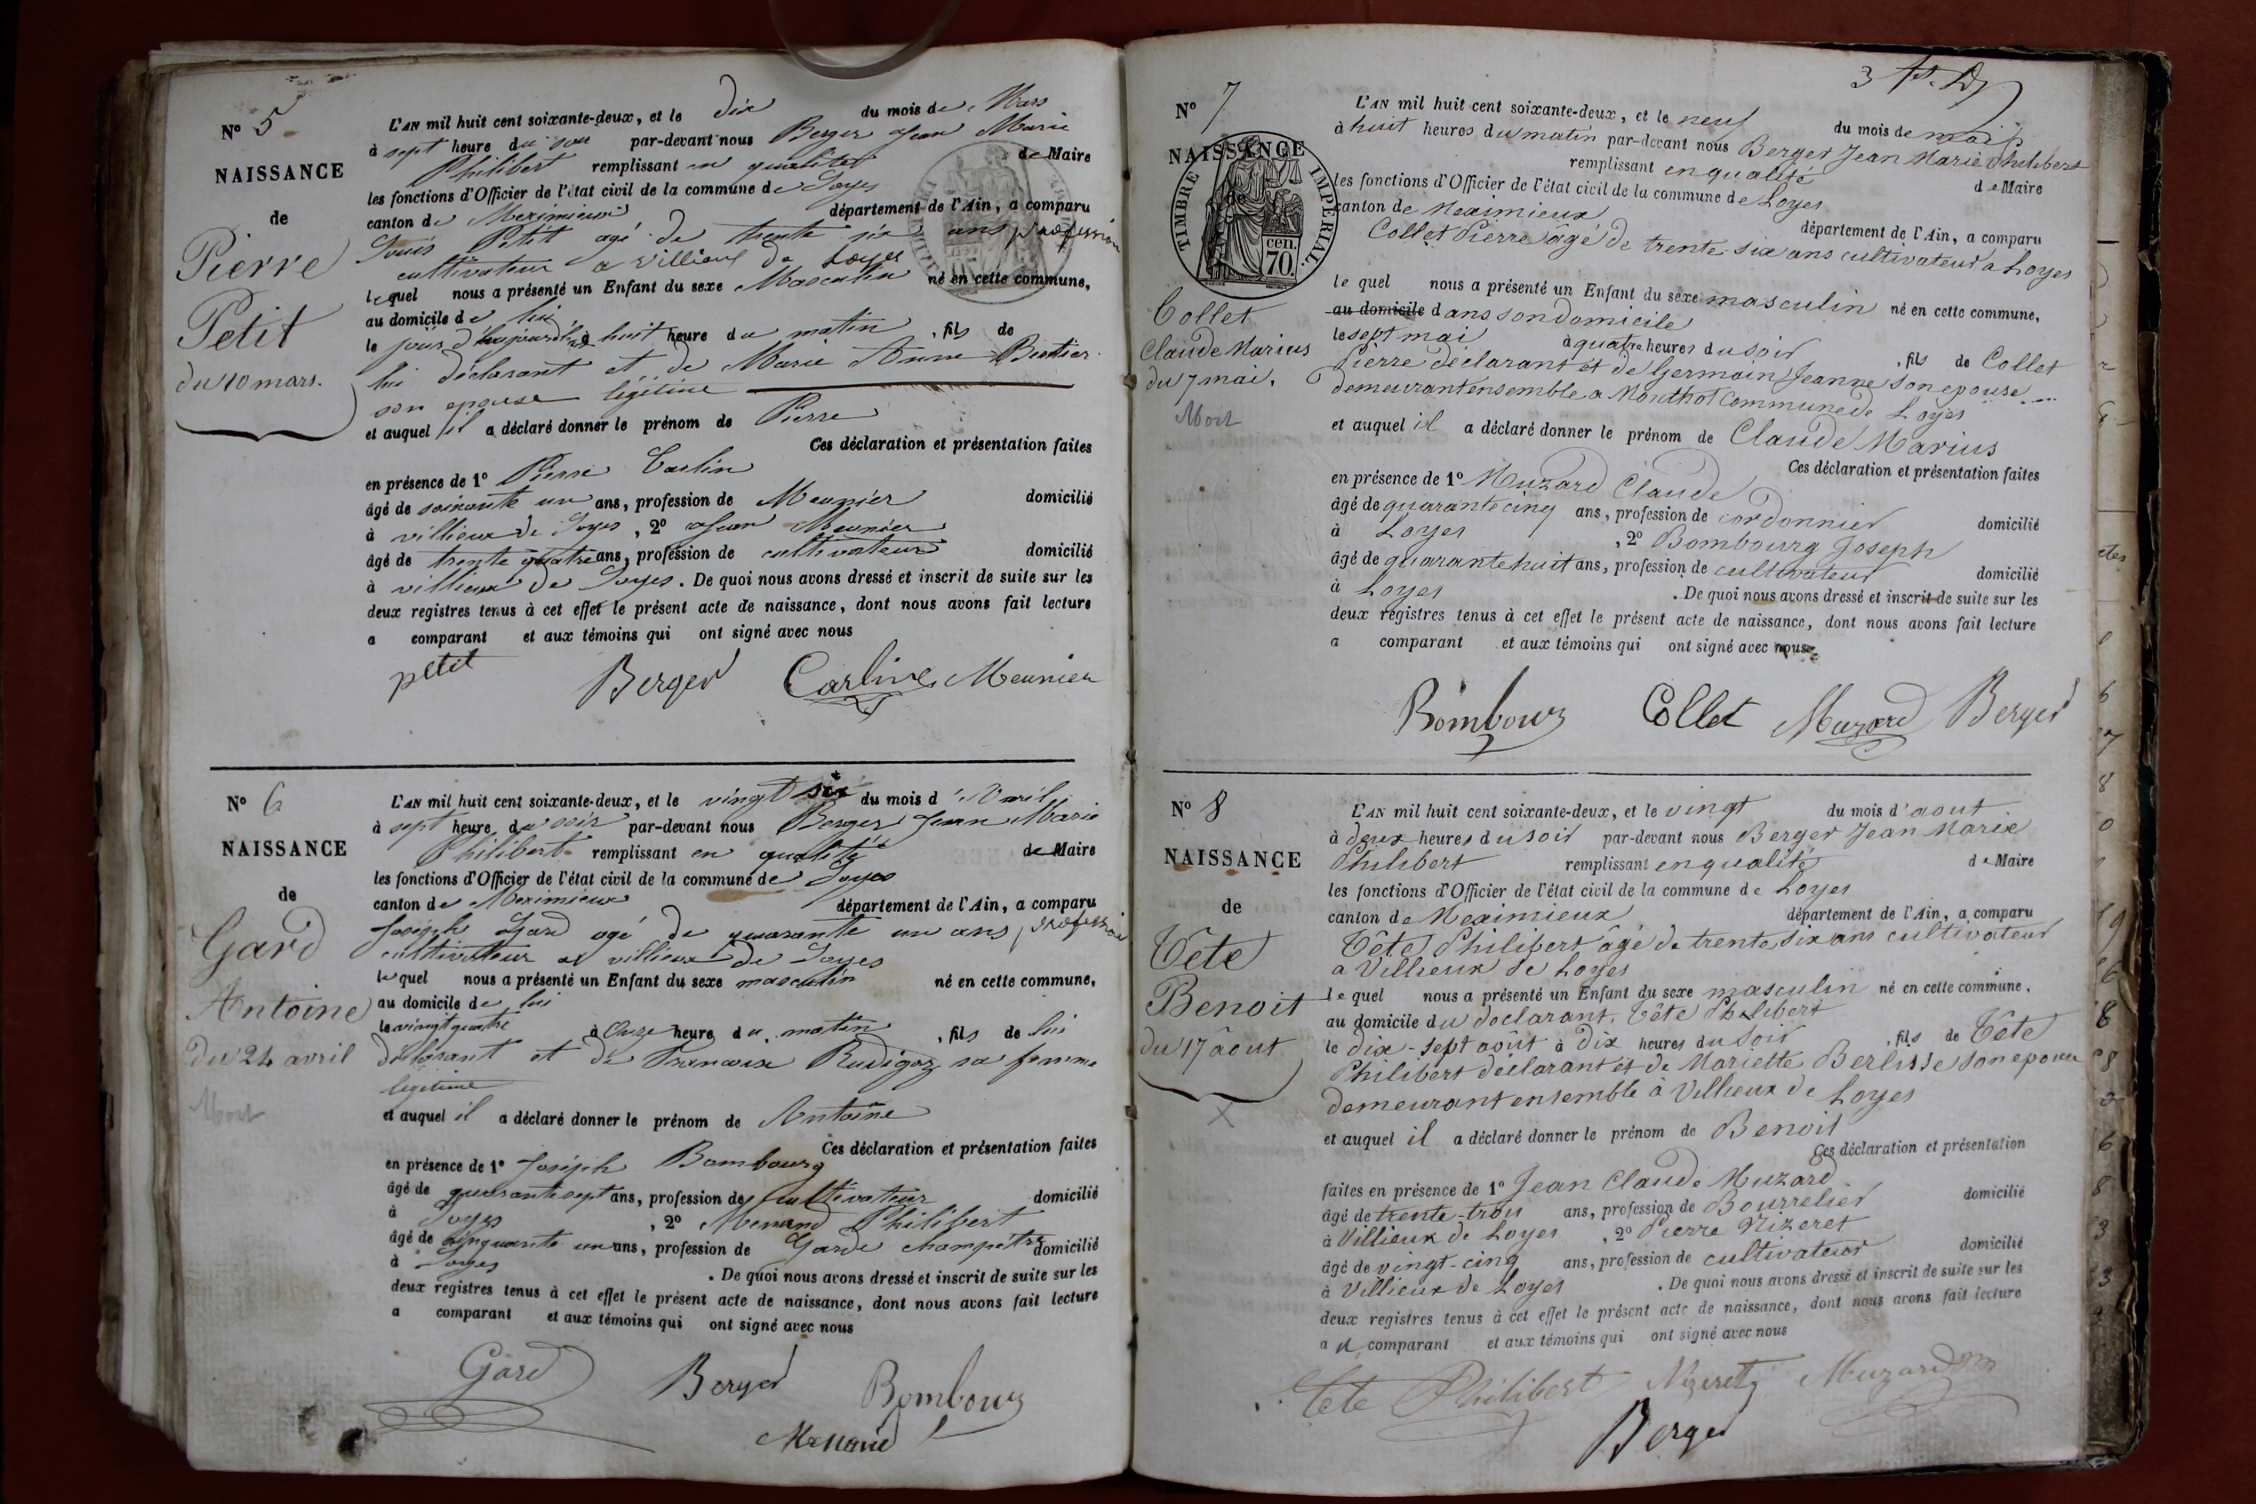 N° 5
NAISSANCE
de
Pierre
Petit
du 10 mars.
L'AN mil huit cent soixante-deux, et le dix du mois de Mars
à sept heure du soir par-devant nous Berger Jean Marie
Philibert remplissant en qualité de Maire
les fonctions d'Officier de l'état civil de la commune de Loyes
canton de Meximieux département de l'Ain, a comparu
Louis Petit agé de trente six ans profession
cultivateur a villieux de Loyes
lequel nous a présenté un Enfant du sexe Masculin né en cette commune,
au domicile de lui
le jour d'hujourd'hui à huit heure du matin, fils de
lui déclarant et de Marie Anne
son epouse légitime
et auquel il a déclaré donner le prénom de Pierre
Ces déclaration et présentation faites
en présence de 1° Pierre Carlin
âgé de soixante un ans, profession de Meunier domicilié
à villieux de Loyes, 2° Jean Meunier
âgé de trente quatre ans, profession de cultivateur domicilié
à villieux de Loyes. De quoi nous avons dressé et inscrit de suite sur les
deux registres tenus à cet effet le présent acte de naissance, dont nous avons fait lecture
a comparant et aux témoins qui ont signé avec nous
petit Berger Carline Meunier
N° 6
NAISSANCE
de
Gard
Antoine
du 24 avril
Mort
L'AN mil huit cent soixante-deux, et le vingt six du mois d'Avril
à sept heure du soir par-devant nous Berger Jean Marie
Philibert remplissant en qualité de Maire
les fonctions d'Officier de l'état civil de la commune de Loyes
canton de Meximieux département de l'Ain, a comparu
Joseph Gard agé de quarante un ans, profession
cultivateur a villieux de Loyes
lequel nous a présenté un Enfant du sexe masculin né en cette commune,
au domicile de lui
le vingt quatre à Onze heure du matin, fils de lui
déclarant et de Francoise Rudigoz sa femme
legitime
et auquel il a déclaré donner le prénom de Antoine
Ces déclaration et présentation faites
en présence de 1° Joséph Bombourg
âgé de quarante sept ans, profession de cultivateur domicilié
à Loyes, 2° Menand Philibert
âgé de cinquante un ans, profession de Garde champêtre domicilié
à Loyes. De quoi nous avons dressé et inscrit de suite sur les
deux registres tenus à cet effet le présent acte de naissance, dont nous avons fait lecture
a comparant et aux témoins qui ont signé avec nous
Gard Berger Bombour
Menand
3
N° 7
NAISSANCE
de
TIMBRE IMPÉRIAL
cen.
70.
Collet
Claude Marius
du 7 mai.
Mort
L'AN mil huit cent soixante-deux, et le neuf du mois de mai
à huit heures du matin par-devant nous Berger Jean Marie Philibert
remplissant en qualité de Maire
les fonctions d'Officier de l'état civil de la commune de Loyes
canton de Meximieux département de l'Ain, a comparu
Collet Pierre âgé de trente six ans cultivateur a Loyes
le quel nous a présenté un Enfant du sexe masculin né en cette commune,
au domicile dans son domicile
le sept mai à quatre heures du soir, fils de Collet
Pierre déclarant et de Germain Jeanne son epouse
demeurant ensemble a Monthot commune de Loyes
et auquel il a déclaré donner le prénom de Claude Marius
Ces déclaration et présentation faites
en présence de 1° Muzard Claude
âgé de quarante cinq ans, profession de cordonnier domicilié
à Loyes, 2° Bombourg Joseph
âgé de quarante huit ans, profession de cultivateur domicilié
à Loyes. De quoi nous avons dressé et inscrit de suite sur les
deux registres tenus à cet effet le présent acte de naissance, dont nous avons fait lecture
a comparant et aux témoins qui ont signé avec nous
Bombour Collet Muzard Berger
N° 8
NAISSANCE
de
Tête
Benoit
du 17 âout
L'AN mil huit cent soixante-deux, et le vingt du mois d'aout
à deux heures du soir par-devant nous Berger Jean Marie
Philibert remplissant en qualité de Maire
les fonctions d'Officier de l'état civil de la commune de Loyes
canton de Meximieux département de l'Ain, a comparu
Tête Philibert âgé de trente six ans cultivateur
a Villieux de Loyes
le quel nous a présenté un Enfant du sexe masculin né en cette commune,
au domicile du declarant, Tête Philibert
le dix-sept août à dix heures du soir, fils de Tête
Philibert déclarant et de Mariette Berlisse son epouse
demeurant ensemble à Villieux de Loyes
et auquel il a déclaré donner le prénom de Benoit
Ces déclaration et présentation
faites en présence de 1° Jean Claude Muzard
âgé de trente-trois ans, profession de Bourrelier domicilié
à Villieux de Loyes, 2° Pierre Nizeret
âgé de vingt-cinq ans, profession de cultivateur domicilié
à Villieux de Loyes. De quoi nous avons dressé et inscrit de suite sur les
deux registres tenus à cet effet le présent acte de naissance, dont nous avons fait lecture
a u comparant et aux témoins qui ont signé avec nous
Tete Philibert Nizeret Muzard
Berger